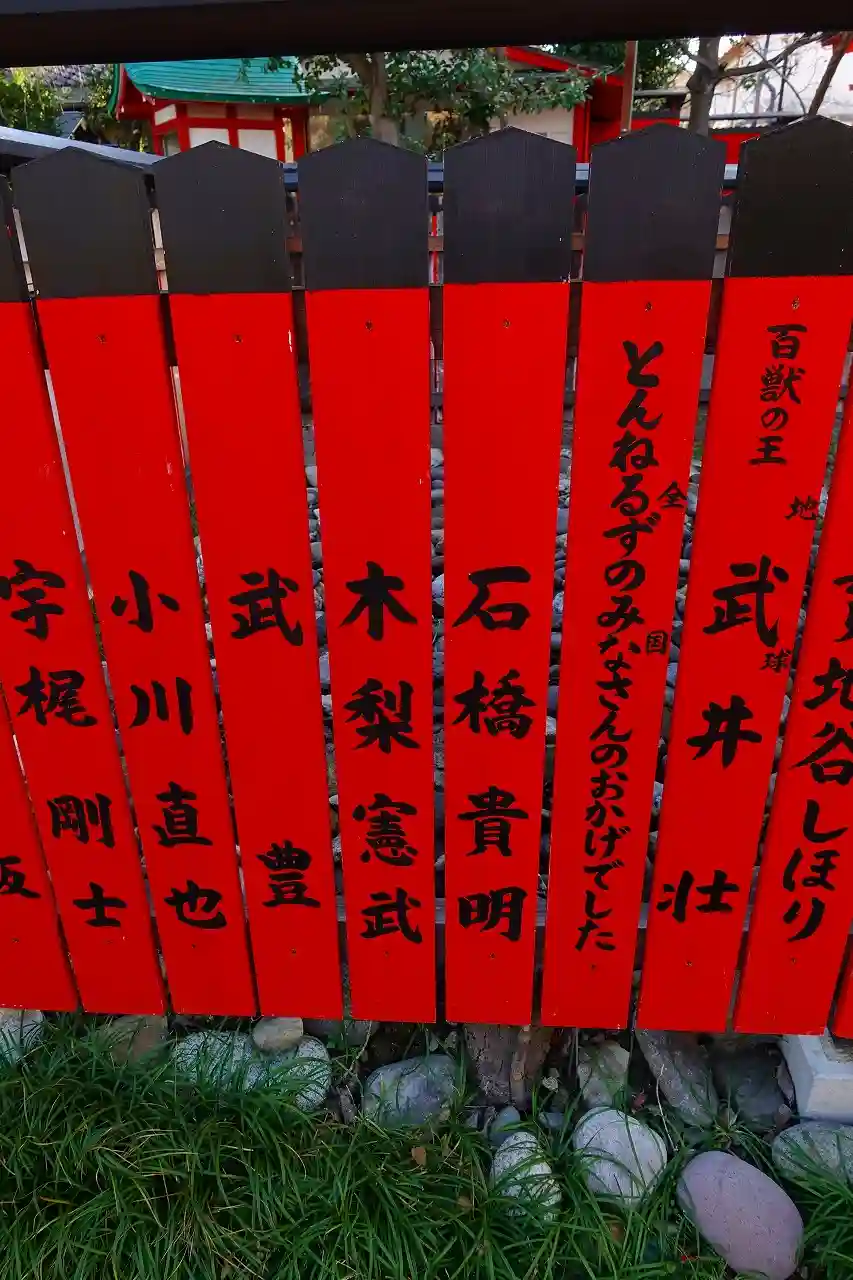 地谷しほり
百獣の王
武井壮
地球
とんねるずのみなさんのおかげでした
全国
石橋貴明
木梨憲武
武豊
小川直也
宇梶剛士